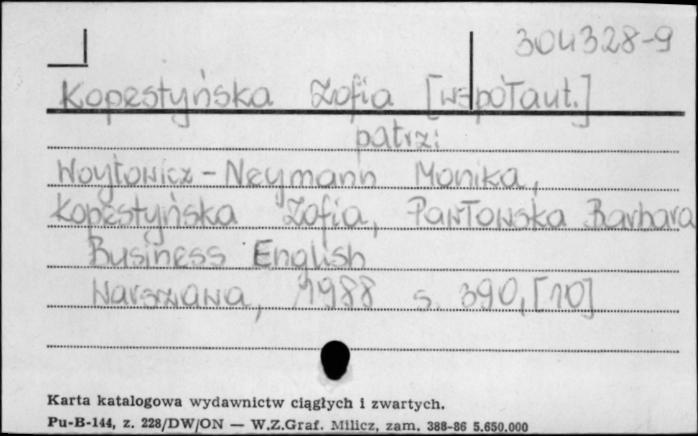 304328-9
Kopestyńska Zofia [współaut.]
patrz:
Woytowicz-Neymann Monika,
Kopestyńska Zofia, Pawłowska Barbara
Business English
Warszawa, 1988 s. 390, [10]
Karta katalogowa wydawnictw ciągłych i zwartych.
Pu-B-144, z. 228/DW/ON — W.Z.Graf. Milicz, zam. 388-86 5.650.000